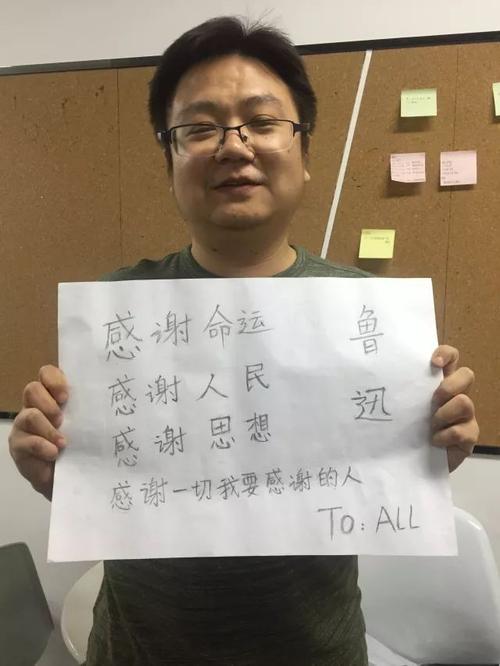 感谢命运
感谢人民
感谢思想
感谢一切我要感谢的人
鲁迅
To: ALL